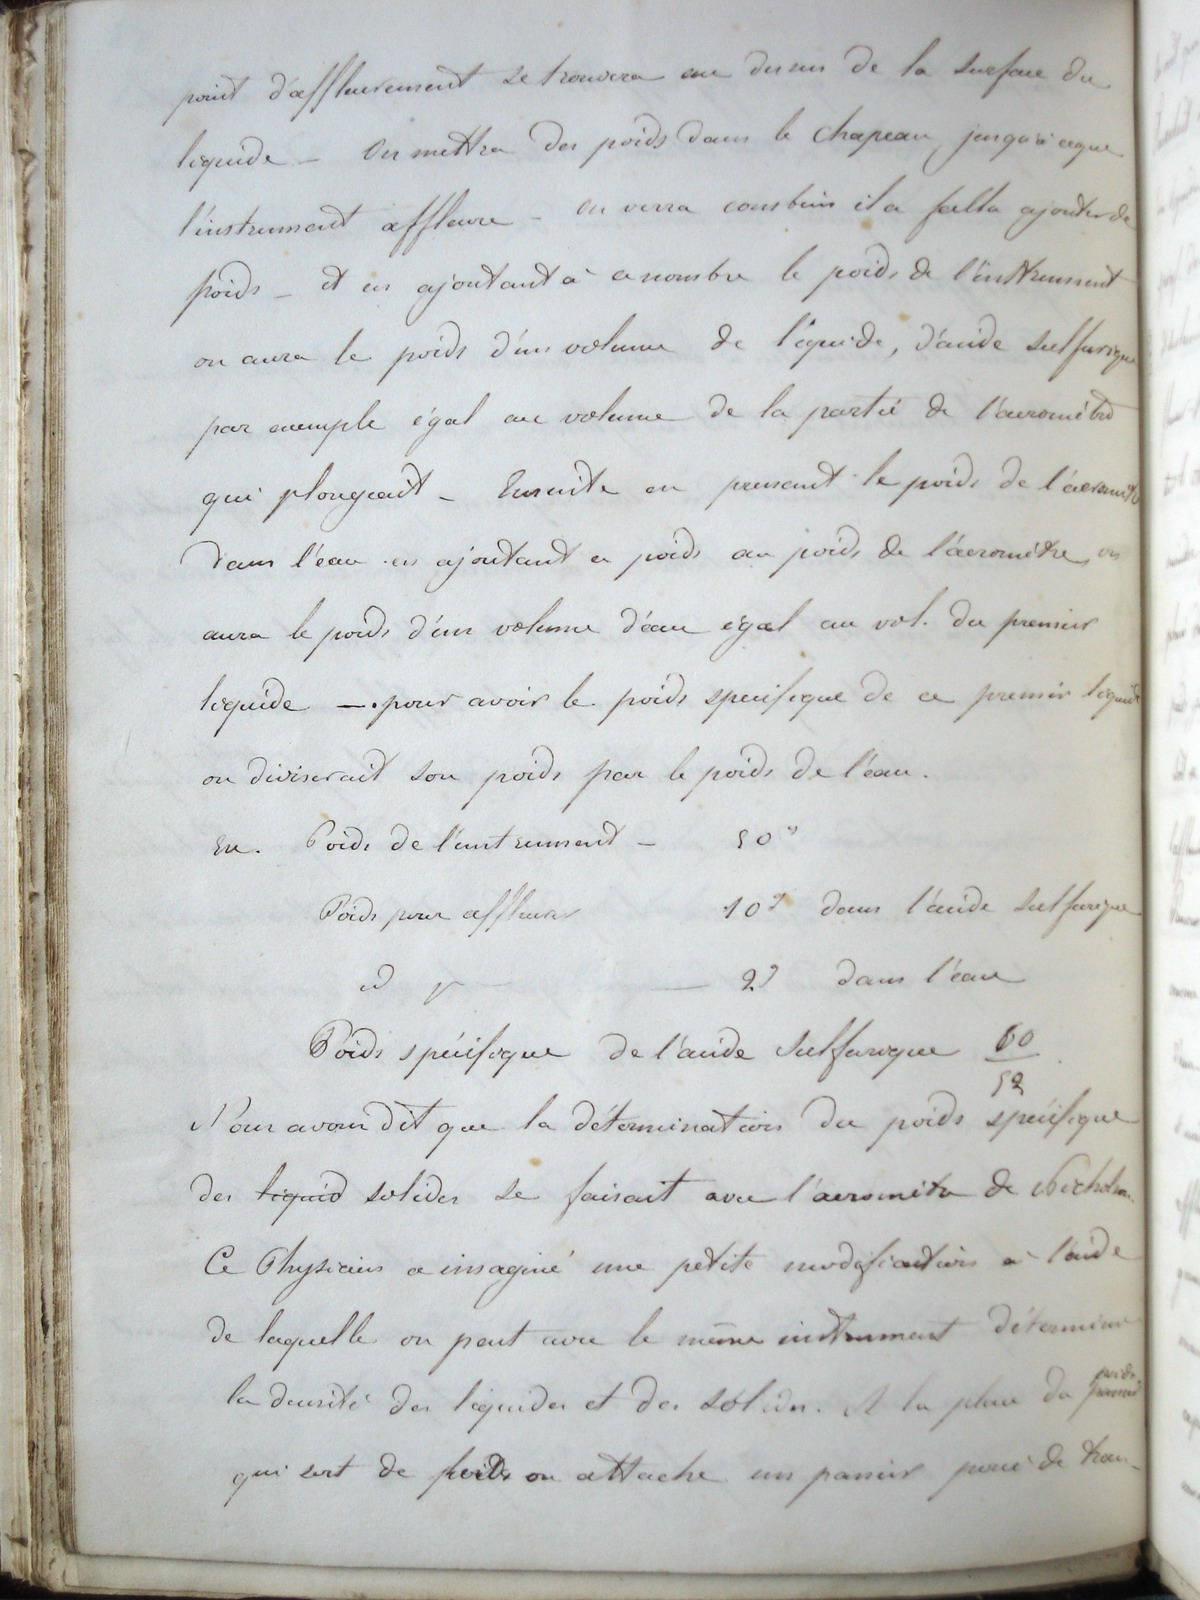 point d'affleurement se trouvera au dessus de la surface du
liquide – On mettra des poids dans le chapeau jusqu'à ce que
l'instrument affleure – on verra combien il a fallu ajouter de
poids – et en ajoutant à ce nombre le poids de l'instrument
on aura le poids d'un volume de liquide, d'acide sulfurique
par exemple égal au volume de la partie de l'aéromètre
qui plongeait – Ensuite en prenant le poids de l'aéromètre
dans l'eau en ajoutant ce poids au poids de l'aéromètre on
aura le poids d'un volume d'eau égal au vol. du premier
liquide – pour avoir le poids specifique de ce premier liquide
on diviserait son poids par le poids de l'eau.
Ex. Poids de l'instrument – 50g
Poids pour affleurer 10g dans l'acide sulfurique
id — 2g dans l'eau
Poids spécifique de l'acide sulfurique 60/52
Nous avons dit que la détermination du poids spécifique
des liquid solides se faisait avec l'aeromètre de Nicholson.
Ce Physicien a imaginé une petite modification à l'aide
de laquelle on peut avec le même instrument déterminer
la densité des liquides et des solides. A la place du poids
qui sert de poids on attache un panier percé de trou-